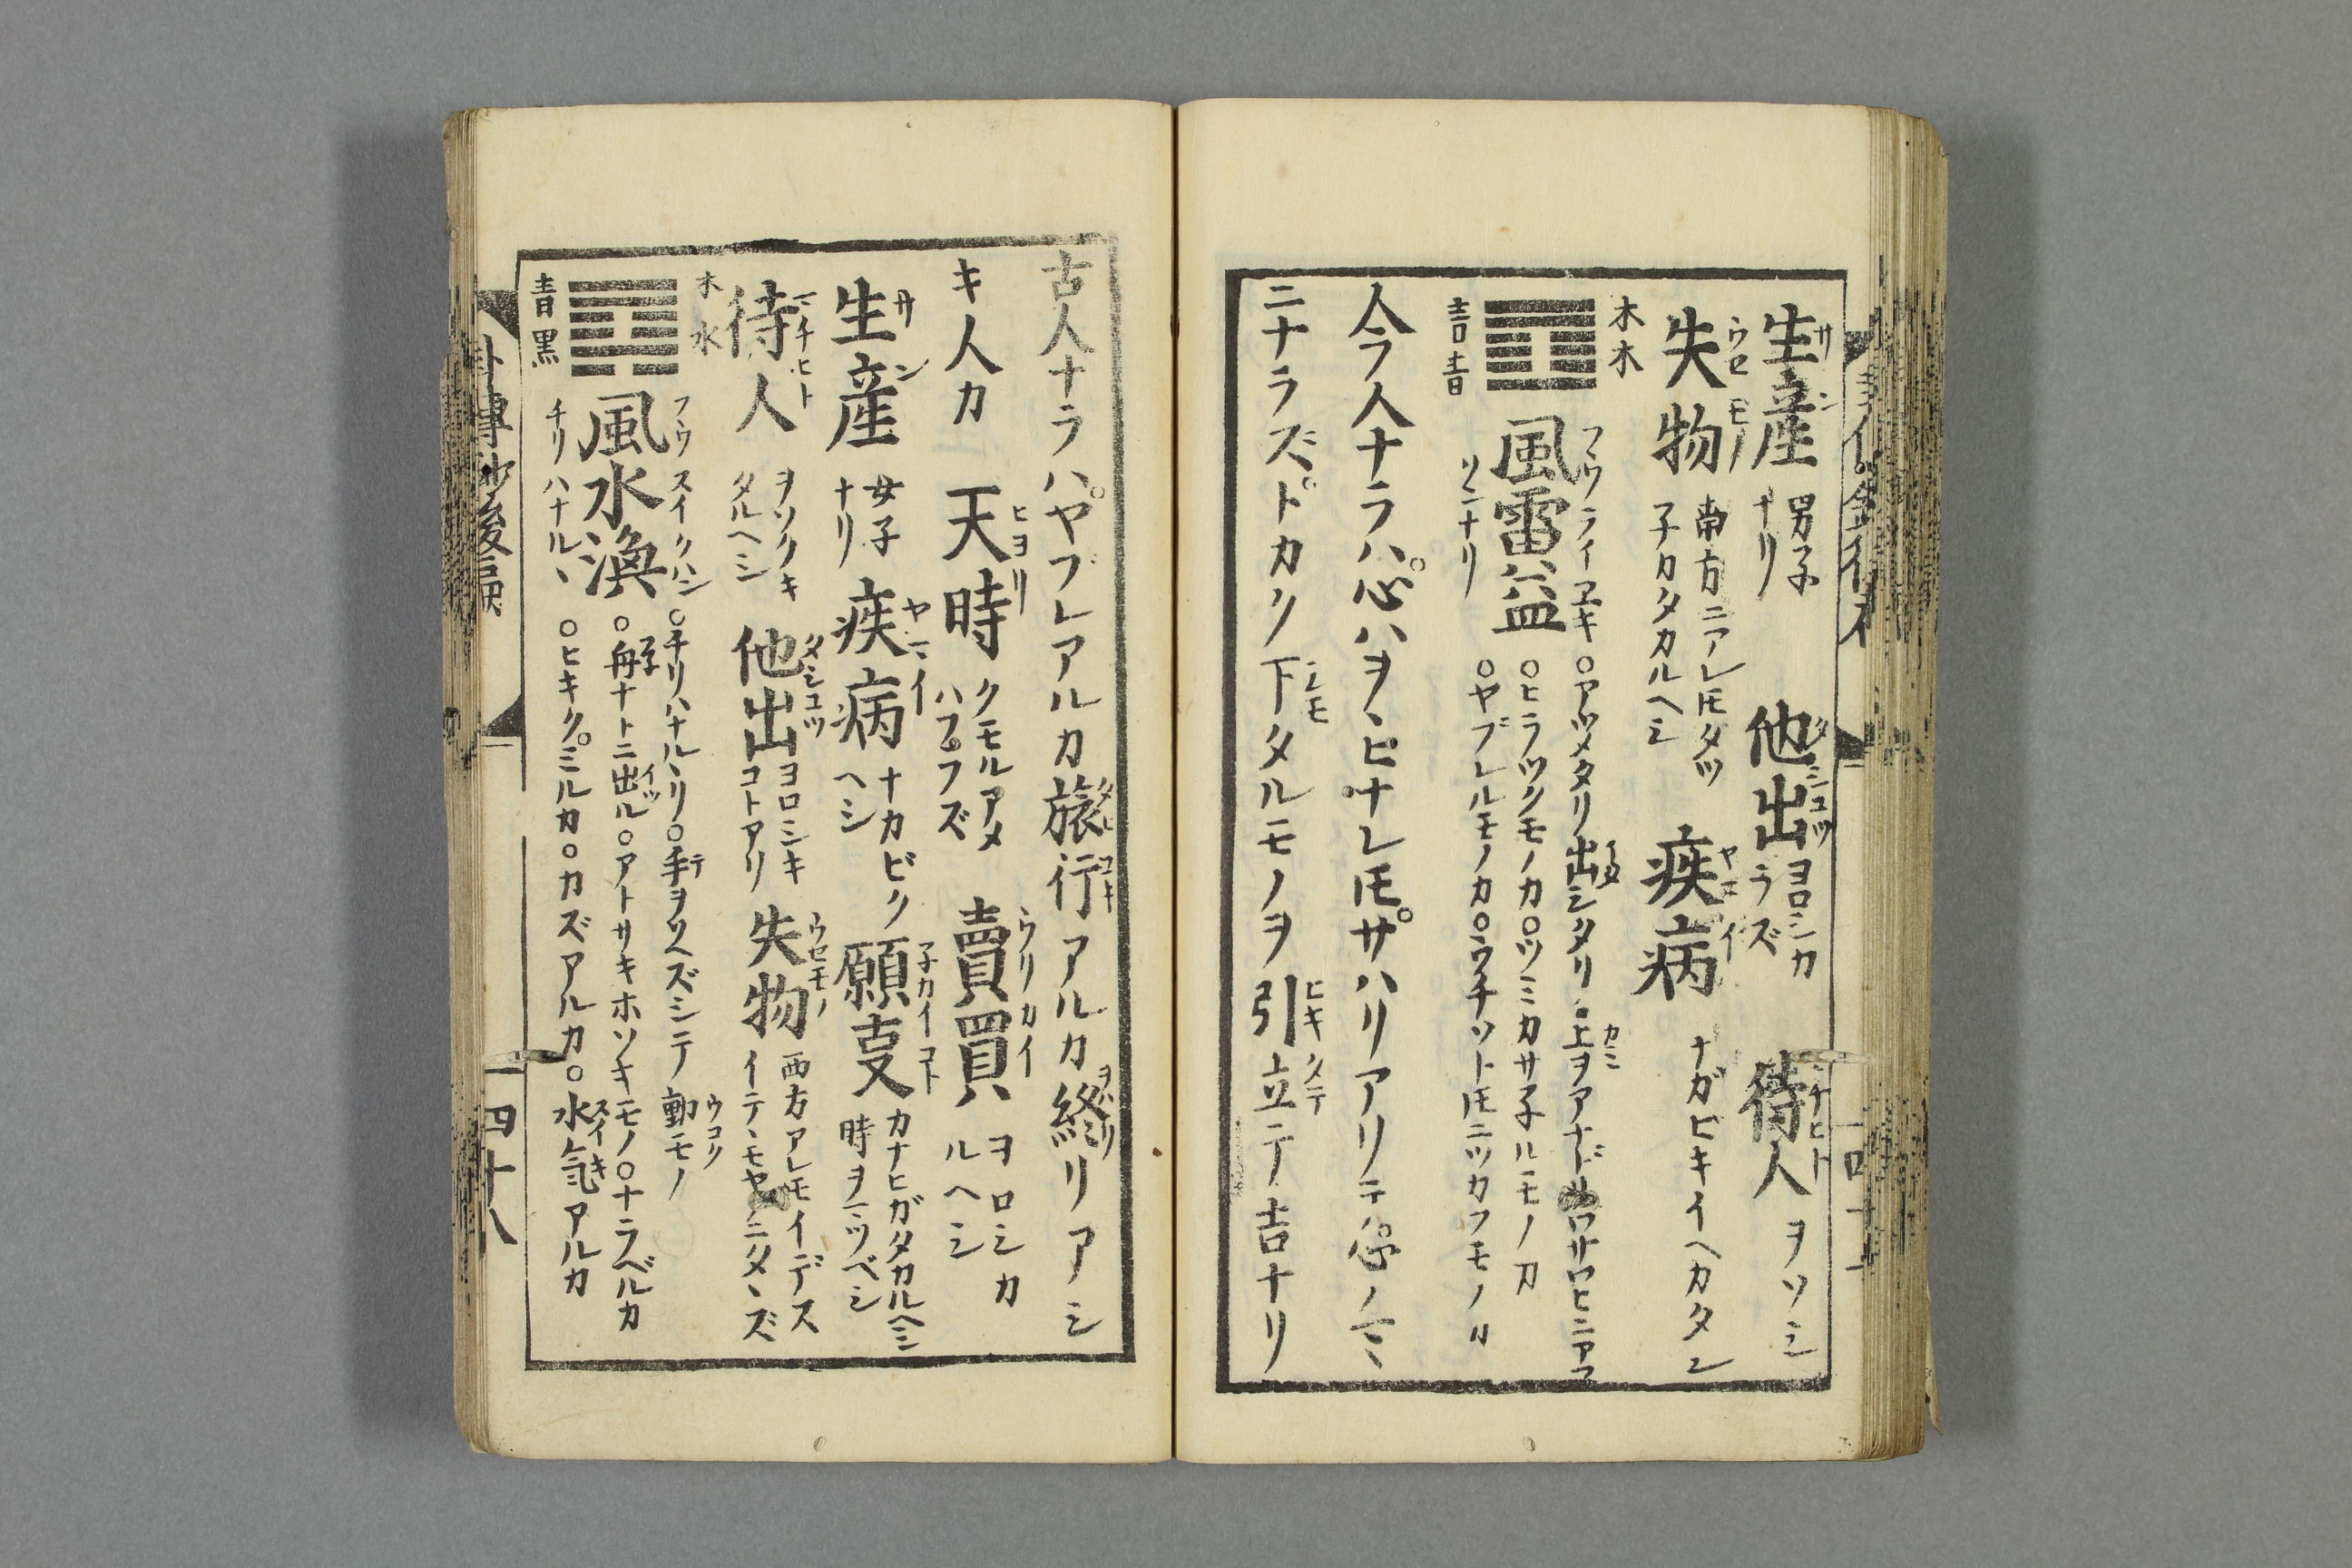 生産 男子ナリ 他出 ヨロシカラズ 待人 ヲソシ
失物 南方ニアレ𪜈タツ子カタカルヘシ 疾病 ナガビキイヘカタシ
木木
風雷益 フウライエキ ○アツメタリ出シタリ○上ヲアナドル
青青
ソンナリ ○ヒラツクモノカ○ツミカサ子ルモノカ
○ヤブレルモノカ○ウチソト𪜈ニツカフモノカ
人今人ナラハ心ハヲヽヒナレ𪜈サハリアリテ心ノミ
ニナラズトカク下タルモノヲ引立テ吉ナリ
古人ナラハヤブレアルカ旅行アルカ終リアシ
キ人カ 天時 クモルアメハフラズ 賣買 ヲロシカルヘシ
生産 女子ナリ 疾病 ナカビクヘシ 願叓 カナヒガタカルヘシ時ヲミツベシ
待人 ヲソクキタルヘシ 他出 ヨロシキコトアリ 失物 西方アレ𪜈イデズイテヽモヤクニタヽズ
木水
風水渙 フウスイクハン ○チリハナルヽリ○手ヲツヘズシテ動モノ
青黒
チリハナルヽ ○舟ナトニ出ル○アトサキホソキモノ○ナラベルカ
○ヒキクミルカ○カズアルカ○水氣アルカ
四十八